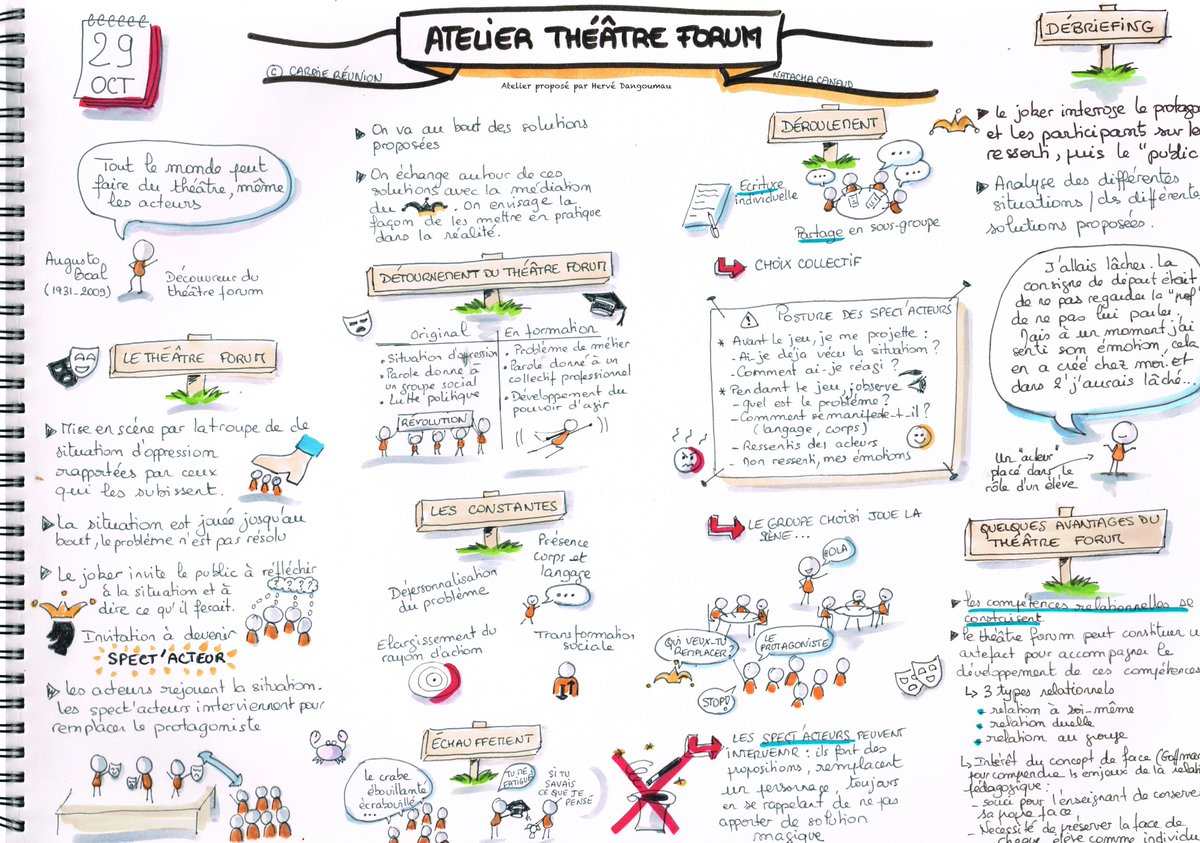 29
OCT
ATELIER THÉÂTRE FORUM
© CARDIE RÉUNION
NATACHA CANAUD
Atelier proposé par Hervé Dangoumau
Tout le monde peut
faire du théâtre, même
les acteurs
Augusto
Boal
(1931-2009)
Découvreur du
théâtre forum
LE THÉÂTRE FORUM
Mise en scène par la troupe de de
situation d'oppression
rapportées par ceux
qui les subissent.
La situation est jouée jusqu'au
bout, le problème n'est pas résolu
Le joker invite le public à réfléchir
à la situation et à
dire ce qu'il ferait.
????
Invitation à devenir
SPECT'ACTEUR
les acteurs rejouent la situation.
les spect'acteurs interviennent pour
remplacer le protagoniste
On va au bout des solutions
proposées
On échange autour de ces
solutions avec la médiation
du . On envisage la
façon de les mettre en pratique
dans la réalité.
DÉTOURNEMENT DU THÉÂTRE FORUM
Original
• Situation d'oppression
• Parole donné à
un groupe social
• Lutte politique
RÉVOLUTION
En formation
• Problème de métier
• Parole donné à un
collectif professionnel
• Développement du
pouvoir d'agir
LES CONSTANTES
Dépersonnalisation
du problème
Présence
corps et
langage
...
Elargissement du
rayon d'action
Transformation
sociale
ÉCHAUFFEMENT
le crabe
ébouillanté
écrabouillé
TU ME
FATIGUE
SI TU
SAVAIS
CE QUE JE
PENSE
DÉROULEMENT
Ecriture
individuelle
...
...
...
Partage en sous-groupe
CHOIX COLLECTIF
! POSTURE DES SPECT'ACTEURS
* Avant le jeu, je me projette :
- Ai-je déjà vécu la situation ?
- Comment ai-je réagi ?
* Pendant le jeu, j'observe
- quel est le problème ?
- Comment se manifeste-t-il ?
(langage, corps)
- Ressentis des acteurs
- Mon ressenti, mes émotions
LE GROUPE CHOISI JOUE LA
SÈNE...
HOLA
QUI VEUX-TU
REMPLACER ?
LE
PROTAGONISTE
STOP!
LES SPECT'ACTEURS PEUVENT
INTERVENIR : ils font des
propositions, remplacent
un personnage, toujours
en se rappelant de ne pas
apporter de solution
magique
DÉBRIEFING
le joker interroge le protagon
et les participant sur le
ressenti, puis le "public
Analyse des différentes
situations / des différente
solutions proposées.
J'allais lâcher. La
consigne de départ était
de ne pas regarder la "prof"
de ne pas lui parler.
Mais à un moment j'ai
senti son émotion, cela
en a créé chez moi. et
dans 2' j'aurais lâché...
Un "acteur"
placé dans le
rôle d'un élève
QUELQUES AVANTAGES DU
THÉÂTRE FORUM
les compétences relationnelles se
construisent
le théâtre forum peut constituer u
artefact pour accompagner le
développement de ces compétences
↳ 3 types relationnels
relation à soi-même
relation duelle
relation au groupe
↳ Intérêt du concept de face (Goffman
pour comprendre les enjeux de la relati
pédagogique :
- souci pour l'enseignant de conserve
sa propre face
- Nécessité de préserver la face de
chaque élève comme individu